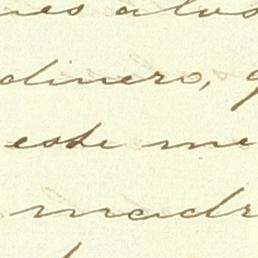 nes a los
dinero, q
este me
madr